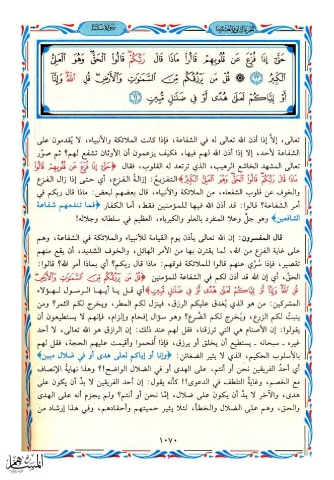 حَتَّىٰ إِذَا فُزِّعَ عَن قُلُوبِهِمْ قَالُوا مَاذَا قَالَ رَبُّكُمْ قَالُوا الْحَقَّ وَهُوَ الْعَلِيُّ
الْكَبِيرُ ﴿٢٣﴾ قُلْ مَن يَرْزُقُكُم مِّنَ السَّمَاوَاتِ وَالْأَرْضِ قُلِ اللَّهُ وَإِنَّا
أَوْ إِيَّاكُمْ لَعَلَىٰ هُدًى أَوْ فِي ضَلَالٍ مُّبِينٍ ﴿٢٤﴾
تعالى، إلاّ إذا أذن الله تعالى له في الشفاعة، فإذا كانت الملائكة والأنبياء، لا يُقدمون على
الشفاعة لأحد، إلا إذا أذن الله لهم فيها، فكيف يزعمون أن الأوثان تشفع لهم؟ ثم صوّر
تعالى المشهد الخاشع الرهيب، الذي ترتعد له القلوب، فقال ﴿حَتَّىٰ إِذَا فُزِّعَ عَن قُلُوبِهِمْ قَالُوا
مَاذَا قَالَ رَبُّكُمْ قَالُوا الْحَقَّ وَهُوَ الْعَلِيُّ الْكَبِيرُ﴾ التفزيع: إزالة الفزع، أي حتى إذا زال الفزع
والخوف عن قلوب الشفعاء، من الملائكة والأنبياء، قال بعضهم لبعض: ماذا قال ربكم في
أمر الشفاعة؟ قالوا: قد أذن الله فيها للمؤمنين فقط، أما الكفار ﴿فما تنفعهم شفاعة
الشافعين﴾ وهو جلّ وعلا المنفرد بالعلو والكبرياء، العظيم في سلطانه وجلاله!
قال المفسرون: إن الله تعالى يأذن يوم القيامة للأنبياء والملائكة في الشفاعة، وهم
على غاية الفزع من الله، لما يقترن بها من الأمر الهائل، والخوف الشديد، أن يقع منهم
تقصير، فإذا سُرّي عنهم قالوا للملائكة فوقهم: ماذا قال ربكم؟ أي بماذا أمر الله؟ قالوا:
الحق، أي إن الله قد أذن لكم في الشفاعة للمؤمنين ﴿قُلْ مَن يَرْزُقُكُم مِّنَ السَّمَاوَاتِ وَالْأَرْضِ
قُلِ اللَّهُ وَإِنَّا أَوْ إِيَّاكُمْ لَعَلَىٰ هُدًى أَوْ فِي ضَلَالٍ مُّبِينٍ﴾ أي قل يا أيها الرسول لهؤلاء
المشركين: من هو الذي يُغدق عليكم الرزق، فينزل لكم المطر، ويخرج لكم الثمر؟ ومن
ينبت لكم الزرع، ويُخرج لكم الضّرع؟ وهو سؤال إفحام وإلزام، فإنهم لا يستطيعون أن
يقولوا: إن الأصنام هي التي ترزقنا، فقل لهم عند ذلك: إن الرازق هو الله تعالى، لا أحد
غيره ـ سبحانه ـ يستطيع أن يخلق أو يرزق، فإذا أفحموا وأقيمت عليهم الحجة، فقل لهم
بالأسلوب الحكيم، الذي لا يثير الضغائن: ﴿وإنا أو إياكم لعلى هدى أو في ضلال مبين﴾
أي أحدُ الفريقين نحن أو أنتم، على الهدى أو في الضلال الواضح!؟ وهذا نهاية الإنصاف
مع الخصم، وغاية التلطف في الدعوى!! كأنه يقول: إن أحد الفريقين لا بدّ أن يكون على
هدى، والآخر لا بدّ أن يكون على ضلال، إمّا نحن أو أنتم؟ ولم يجزم أنه على الهدى
والحق، وهم على الضلال والخطأ، لئلا يثير حميتهم وأحقادهم، وفي هذا إرشاد من
١٠٧٠